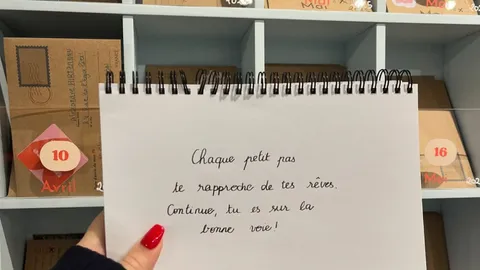 Mai
10
Avril
16
Chaque petit pas
te rapproche de tes rêves.
Continue, tu es sur la
bonne voie!